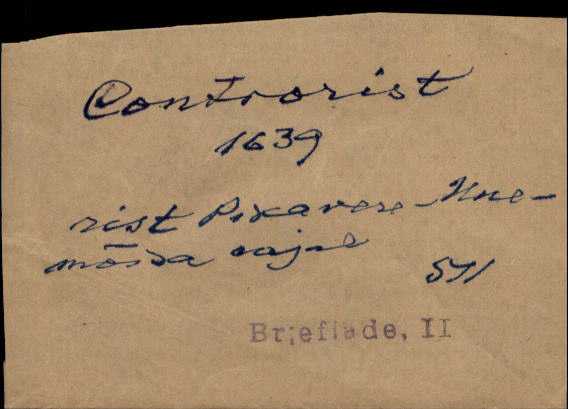 Controrist
1639
rist Pikavere-Une-
mõisa rajal
571
Brieflade, II